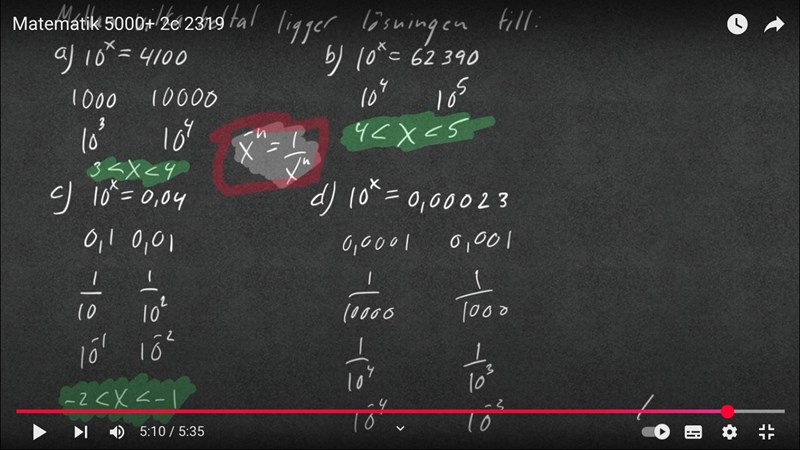 Matematik 5000+ 2c 2319
Mellan vilka heltal ligger lösningen till:
a) 10^x = 4100
1000 10000
10^3 10^4
3 < x < 4
b) 10^x = 62390
10^4 10^5
4 < x < 5
x^-n = 1/x^n
c) 10^x = 0,04
0,1 0,01
1/10 1/10^2
10^-1 10^-2
-2 < x < -1
d) 10^x = 0,00023
0,0001 0,001
1/10000 1/1000
1/10^4 1/10^3
10^-4 10^-3
5:10 / 5:35